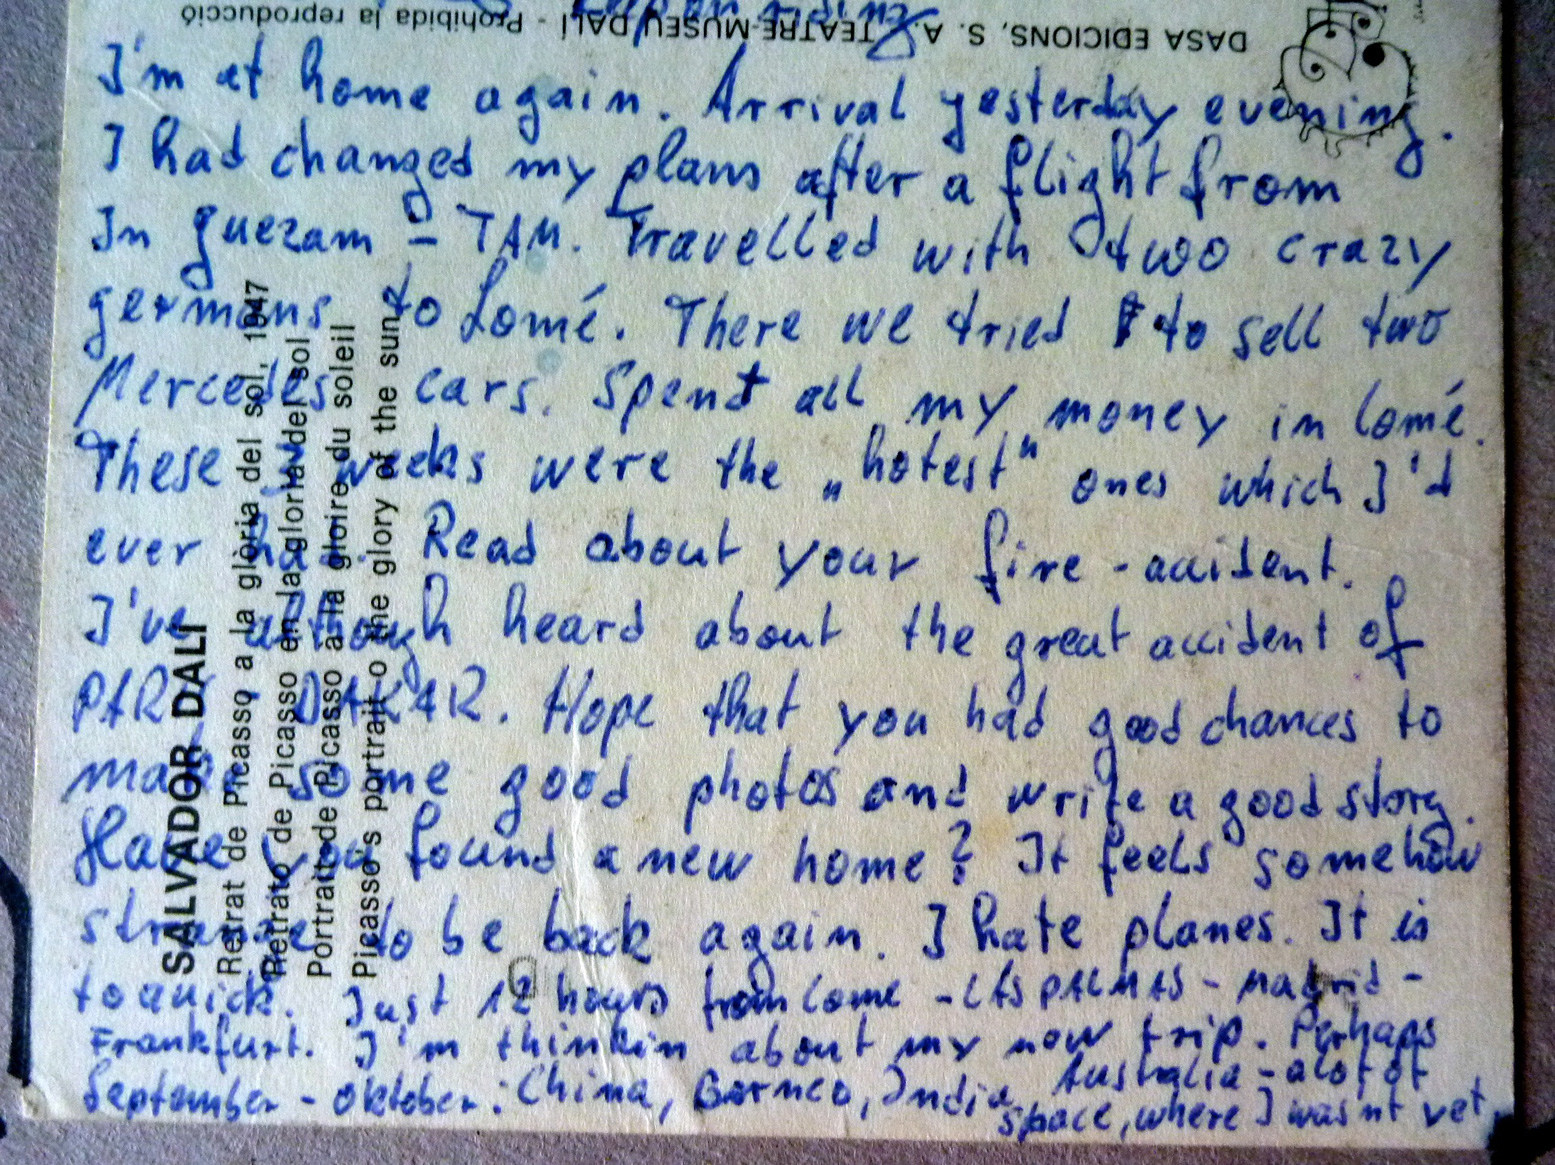 DASA EDICIONS, S. A. TEATRE-MUSEU DALÍ - Prohibida la reproducció
I'm at home again. Arrival yesterday evening.
I had changed my plans after a flight from
In guezam – TAM. Travelled with two crazy
germans to Lomé. There we tried to sell two
Mercedes cars. Spent all my money in Lomé.
These weeks were the „hotest" ones which I'd
ever had. Read about your fire-accident.
I've although heard about the great accident of
PARIS DAKAR. Hope that you had good chances to
make some good photos and write a good story.
Have you found a new home? It feels somehow
strange to be back again. I hate planes. It is
to quick. Just 12 hours from Lome - LAS PALMAS - Madrid -
Frankfurt. I'm thinkin about my now trip. Perhaps
September - oktober: China, Borneo, India, Australia - alot of
space, where I wasnt yet
SALVADOR DALI
Retrat de Picasso a la glòria del sol, 1947
Retrato de Picasso en la gloria del sol
Portrait de Picasso à la gloire du soleil
Picasso's portrait o the glory of the sun